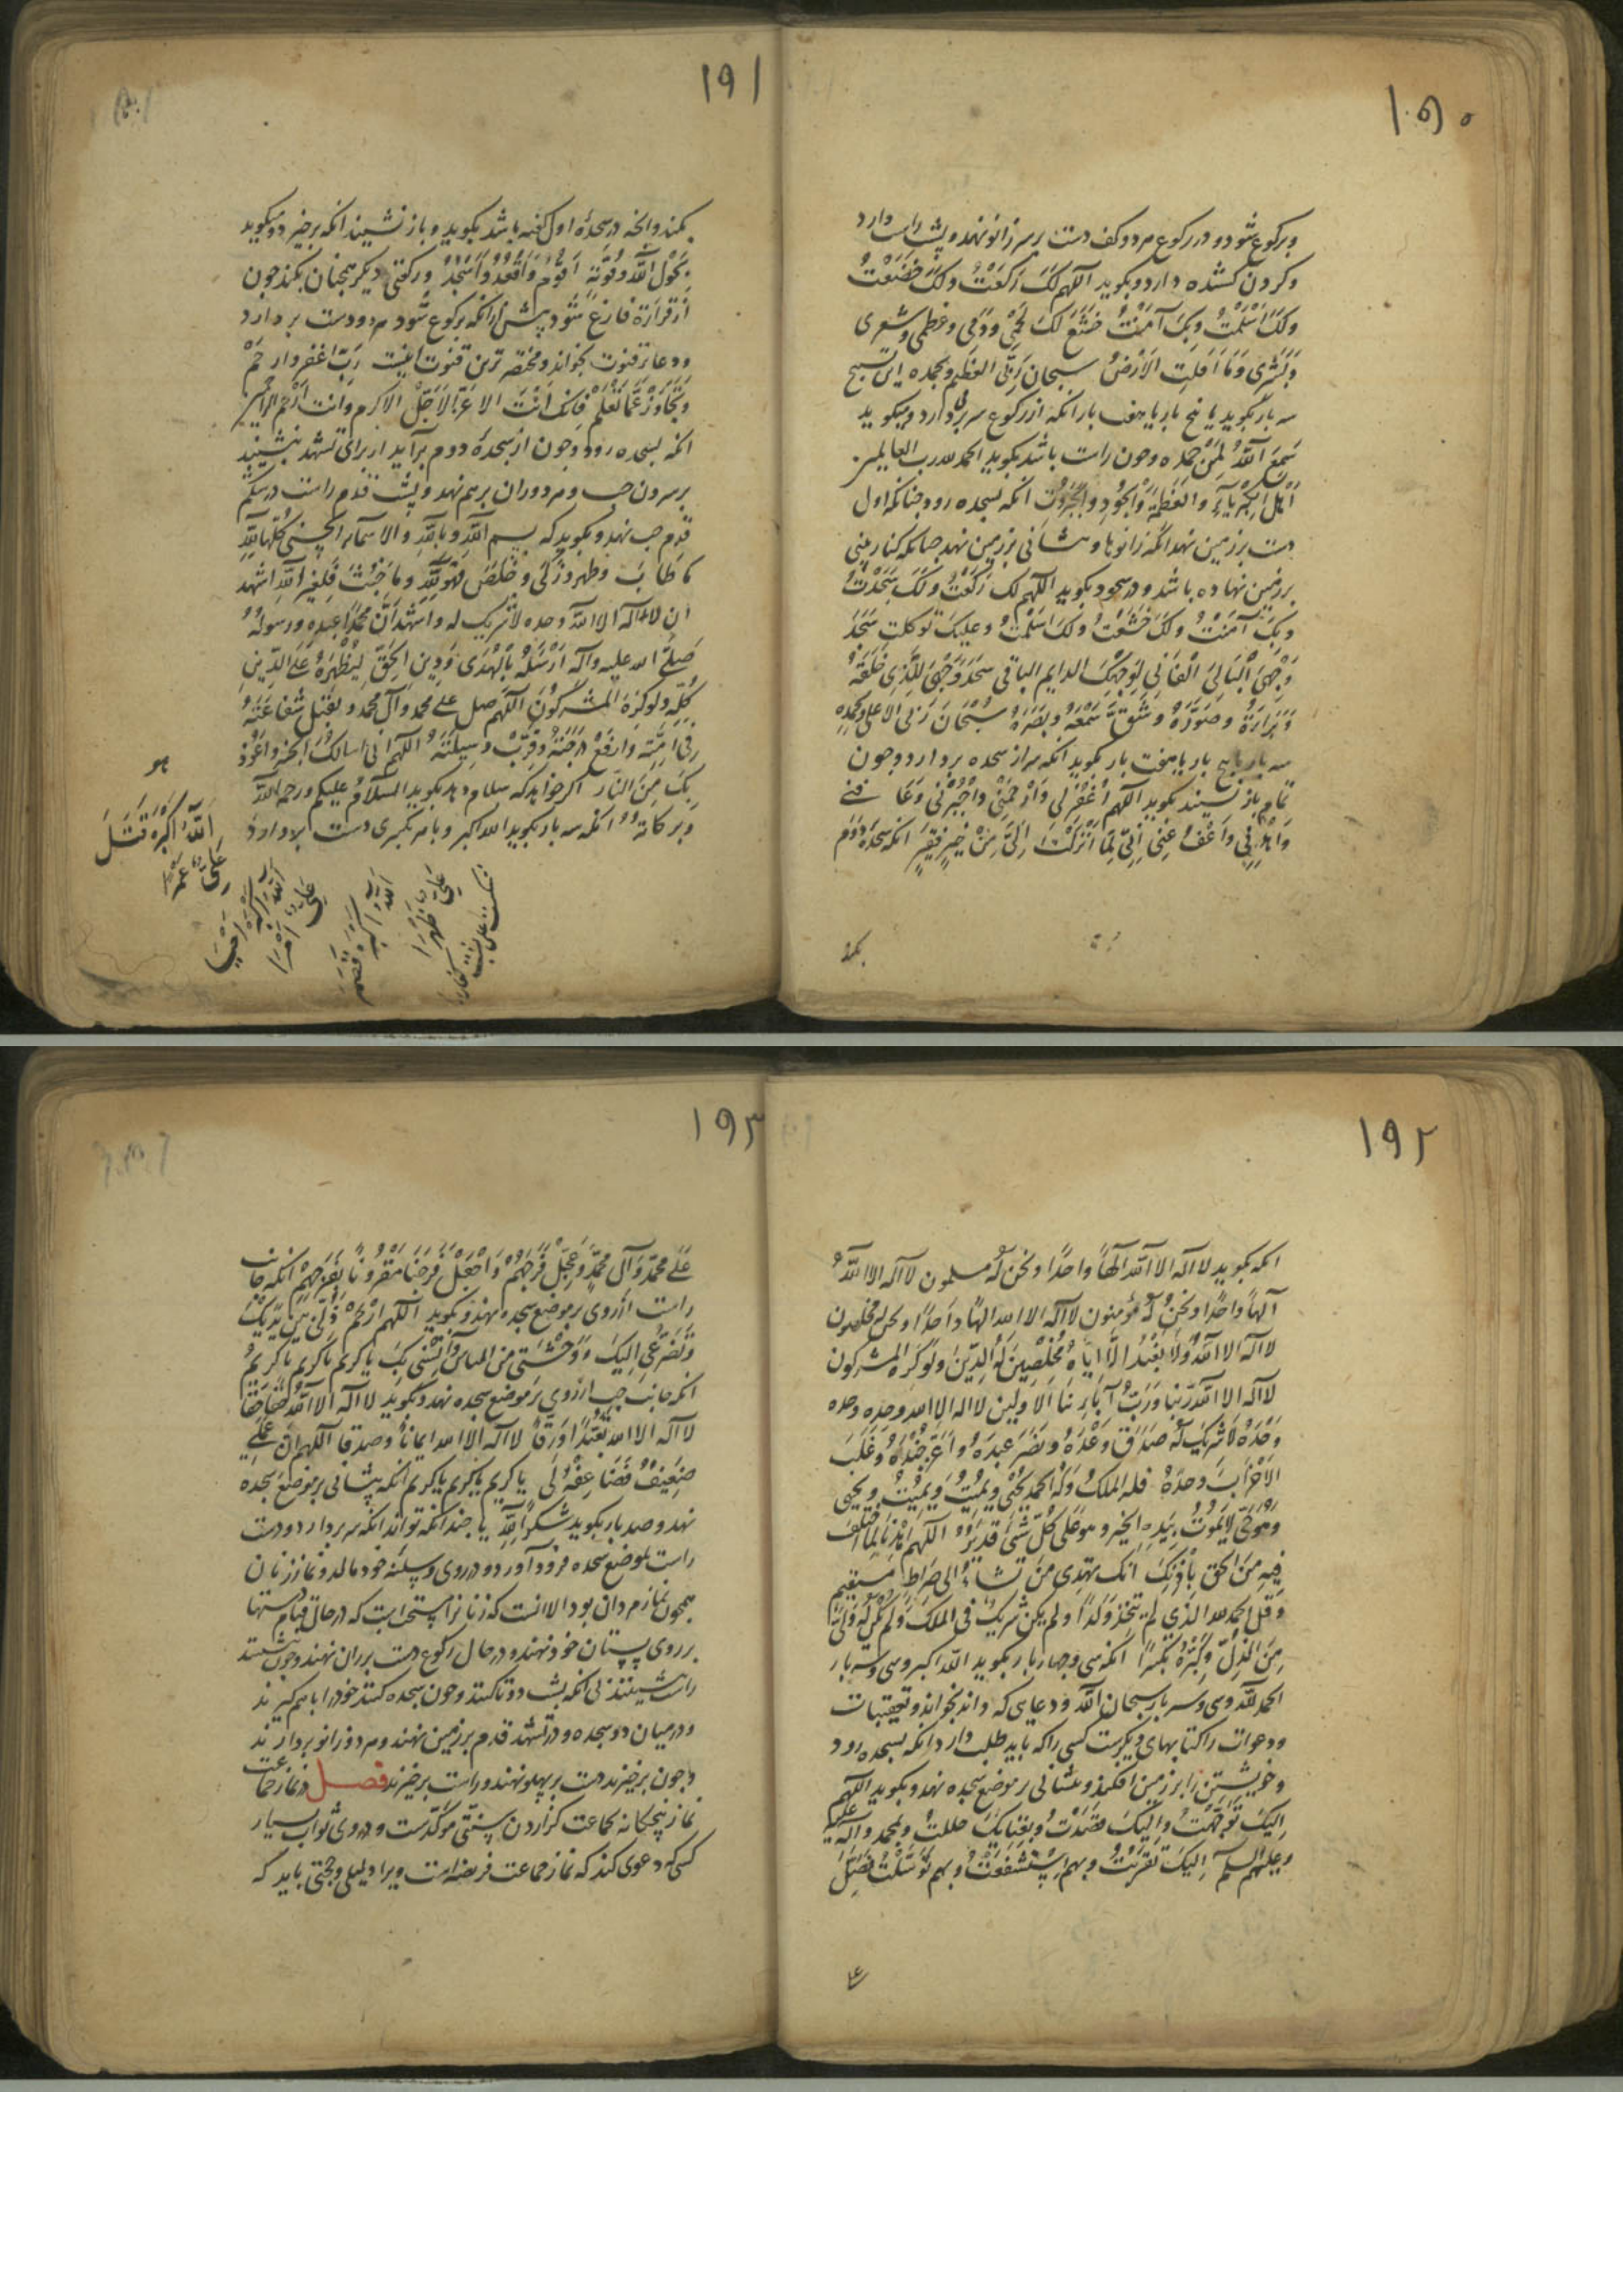 ۱۹۰
وبرکوع شود و در رکوع هر دو کف دست بر سر زانو نهد و پشت راست دارد
وکردن کشیده دارد و بکوید اللهم لَکَ رَکَعْتُ ولَکَ خَضَعْتُ
ولَکَ اَسْلَمْتُ وبِکَ آمَنْتُ خَشَعَ لَکَ لَحْمی ودَمی وعَظمی وشعری
وبَشَری وَمَا اَقَلَّتِ الاَرْضُ سبحان رَبِّیَ العَظیم وبحمده این تسبیح
سه بار بکوید یا پنج بار یا هفت بار انکه از رکوع سر بردارد ومیکوید
سَمِعَ اللّٰهُ لِمَنْ حَمِدَه وچون راست باشد بکوید الحمد لله رب العالمین
اَهْلِ الْکِبْریَآءِ والعَظَمَةِ وَالْجُودِ والجَبَرُوتِ انکه بسجده رود چنانکه اول
دست بر زمین نهد انکه زانوها و پیشانی بر زمین نهد چنانکه کنار بینی
بر زمین نهاده باشد و در سجود بکوید اللهم لک رَکَعْتُ ولَکَ سَجَدْتُ
وبِکَ آمَنْتُ ولَکَ خَشَعْتُ ولَکَ اَسْلَمْتُ وعلیکَ توکلت سَجَدَ
وَجْهِیَ الْبَالِیَ الْفَانِی لِوَجْهِکَ الدایم الباقی سَجَدَ وَجْهِیَ لِلَّذِی خَلَقَهُ
وَبَرَاَهُ وصَوَّرَهُ وشَقَّ سَمْعَهُ وبَصَرَهُ سُبْحَانَ رَبّیَ الاَعلی وبحمده
سه بار یا پنج بار یا هفت بار بکوید انکه سر از سجده بردارد و چون
تمام باز نشیند بکوید اللهم اغْفِرْلی وَارْحَمْنی واجْبُرْنی وَعَافنی
وَاهْدِنِی واعْفُ عَنِّی اِنِّی لِمَا اَنْزَلْتَ اِلَیَّ مِنْ خَیرٍ فقیرٌ انکه سجده دوم
بکند
۱۹۱
بکند وانچه در سجدهٔ اول کفته باشد بکوید و باز نشیند انکه برخیزد و میکوید
بِحَوْلِ اللّٰهِ وقُوَّتِهِ اَقُومُ وَاَقْعُدُ واَسْجُدُ ورکعتی دیکر همچنان بکند چون
از قراءة فارغ شود پیش ازانکه برکوع شود هر دو دست بردارد
ودعاء قنوت بخواند ومختصر ترین قنوت اینست رَبِّ اغْفِر وارحَمْ
وتَجَاوَزْ عَمَّا تَعْلَمْ فَانک اَنْتَ الاعَزُّ الاَجَلّ الاکرم وانت ارْحَم الراحمین
انکه بسجده رود وچون از سجدهٔ دوم برآید از برای تشهد بنشیند
بر سرون چپ وهر دو ران برهم نهد و پشت قدم راست در شکم
قدم چپ نهد وبکوید که بسم اللّٰهِ وباللّٰهِ والاسمآء الحُسنی کُلّهَا لِلّٰهِ
مَا طَابَ وطَهر وزَکَی وخَلَصَ فَهُوَ لِلّٰهِ ومَا خَبُثَ فَلِغَیرِ اللّٰهِ اشهد
ان لا اله الا اللّٰه وحده لا شریک له واَشهَدُ اَنَّ محمدًا عبده ورسولُهُ
صَلَّی الله علیه وآله اَرْسَلَهُ بالْهُدَی وَدِینِ الحَقِّ لِیُظْهِرَهُ عَلَی الدِّینِ
کُلِّهِ ولوکَرِهَ المشرکُونَ اللّهم صل علی محمد وآل محمد وتَقَبَّل شَفاعَتَهُ
فی اُمَّتِهِ وارفَعْ دَرَجَتَهُ وقَرِّبْ وَسِیلَتَهُ اللهم انی اسالکَ الجنة واَعُوذُ
بِکَ مِنَ النَّار اکر خواهد که سلام دهد بکوید السلامُ علیکم ورحمة اللّٰهِ
وبرکاتُهُ انکه سه بار بکوید الله اکبر وباهر تکبیری دست بردارد
هو
اللّٰهُ اَکبَرُ قَتَلَ
عَلِیٌّ عَمْرًا
اللّٰهُ اکبَرُ
عَلِیٌّ
اللّٰهُ اکبَرُ قَصَمَ
عَلِیٌّ ظَهْرًا
۱۹۲
انکه بکوید لا اله الا اللّٰه الهًا واحدًا ونحن لَهُ مسلمون لا اله الا اللّٰهُ
آلهًا واحدًا ونحنُ لَهُ مُؤمنون لا اله الا الله الهًا واحدًا ونحن له مخلصون
لا اله الا اللّٰهُ ولا نَعْبُدُ اِلّا اِیَّاهُ مُخْلِصِینَ لَهُ الدِّینَ ولَوکَرِهَ المشرکون
لا اله الا اللّٰه رَبّنا ورَبّ آبآئِنَا الاولین لا اله الا الله وحده وحده
وَحْدَهُ لا شَرِیکَ لَهُ صَدَقَ وَعْدَهُ ونَصَرَ عَبدَهُ واَعَزَّ جُنْدَهُ وغَلَبَ
الاَحْزَابَ وحدَهُ فله الملکُ ولَهُ الحمد یُحْیی ویُمیتُ ویُمِیتُ ویحیی
وهُوَ حَیٌّ لا یَمُوتُ بِیَدِهِ الخیر وهو عَلی کُلّ شَیْءٍ قدیرٌ اللهم اهْدِنَا لِمَا اختُلِفَ
فِیهِ مِنَ الحق بِاِذْنِکَ انک تَهدِی مَن تشآءُ الی صِراطٍ مستقیم
وقل الحمد لله الذی لم یتَّخِذ وَلَدًا ولم یکن له شریکٌ فی الملک ولَم یَکُن لَهُ وَلِیٌّ
مِنَ الذُّلِّ وکَبِّرْهُ تَکْبِیرًا انکه سی وچهار بار بکوید اللّٰه اکبر وسی وسه بار
الحمد للّٰه وسی وسه بار سبحان اللّٰه ودعایی که داند بخواند وتعقیبات
ودعوات را کتابهای دیکرست کسی را که باید طلب دارد انکه بسجده رود
وخویشتن را بر زمین افکند وپیشانی بر موضع سجده نهد وبکوید اللّهم
اِلیکَ تَوَجَّهْتُ وَاِلَیکَ قَصَدْتُ وبِفِنَائِکَ حللتُ وبمحمد وآله علیه
وعلیهم السلم اِلیکَ تقربْتُ وبهم اِسْتَشْفَعْتُ وبهم تَوَسَّلْتُ فَصَلِّ
علی
۱۹۳
عَلَی محمّدٍ وآل محمّدٍ وعَجِّلْ فَرَجَهُم واجْعَلْ فَرَجَنَا مَقْرُونًا بِفَرَجِهِمْ انکه جانب
راست از روی بر موضع سجده نهد وبکوید اللهم ارْحَمْ ذُلّی بَینَ یَدَیکَ
وتَضَرُّعی اِلیکَ ووَحْشَتی من الناس واُنْسی بکَ یا کریمُ یا کریم یا کریمُ
انکه جانب چپ از روی بر موضع سجده نهد وبکوید لا اله الا اللّٰهُ حَقًّا حَقًّا
لا اله الا الله تعبُّدًا ورِقًّا لا اله الا الله ایمانًا وصدقًا اللهم ان عَمَلِی
ضَعِیفٌ فَضَاعِفْهُ لی یا کریم یا کریم یا کریم انکه پیشانی بر موضع سجده
نهد وصد بار بکوید شکرًا لِلّٰهِ یا چندانکه تواند انکه سر بردارد ودست
راست بموضع سجده فرود آورد ودر روی وسینه خود مالد ونماز زنان
همچون نماز مردان بود الا انست که زنانرا مستحب است که در حال قیام دستها
بر روی پستان خود نهند ودر حال رکوع دست بر ران نهند وچون نشینند
راست نشینند بی انکه پشت دوتا کنند وچون سجده کنند خود را باهم کیرند
ودر میان دو سجده ودر تشهد قدم بر زمین نهند وهر دو زانو بردارند
وچون برخیزند دست بر پهلو نهند وراست برخیزند فصل در نماز جماعت
نماز پنجکانه بجماعت کزاردن سنّتی مؤکّدست ودر وی ثواب بسیار
کسی که دعوی کند که نماز جماعت فریضه است ویرا دلیلی وحجتی باید که